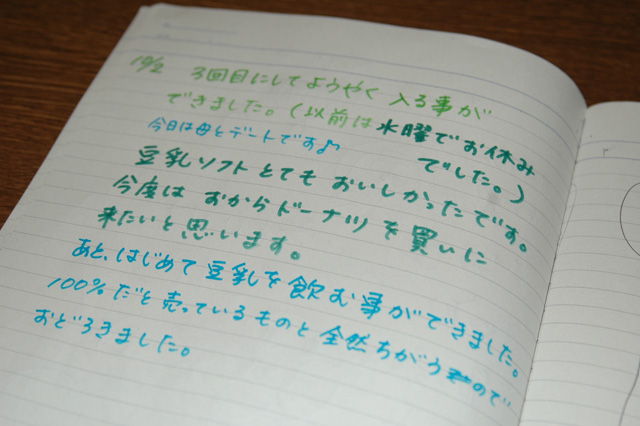 10/2 3回目にしてようやく入る事が
できました。(以前は水曜でお休み
でした。)
今日は母とデートですよ♪
豆乳ソフトとてもおいしかったです。
今度はおからドーナツを買いに
来たいと思います。
あと、はじめて豆乳を飲む事ができました。
100%だと売っているものと全然ちがうので
おどろきました。